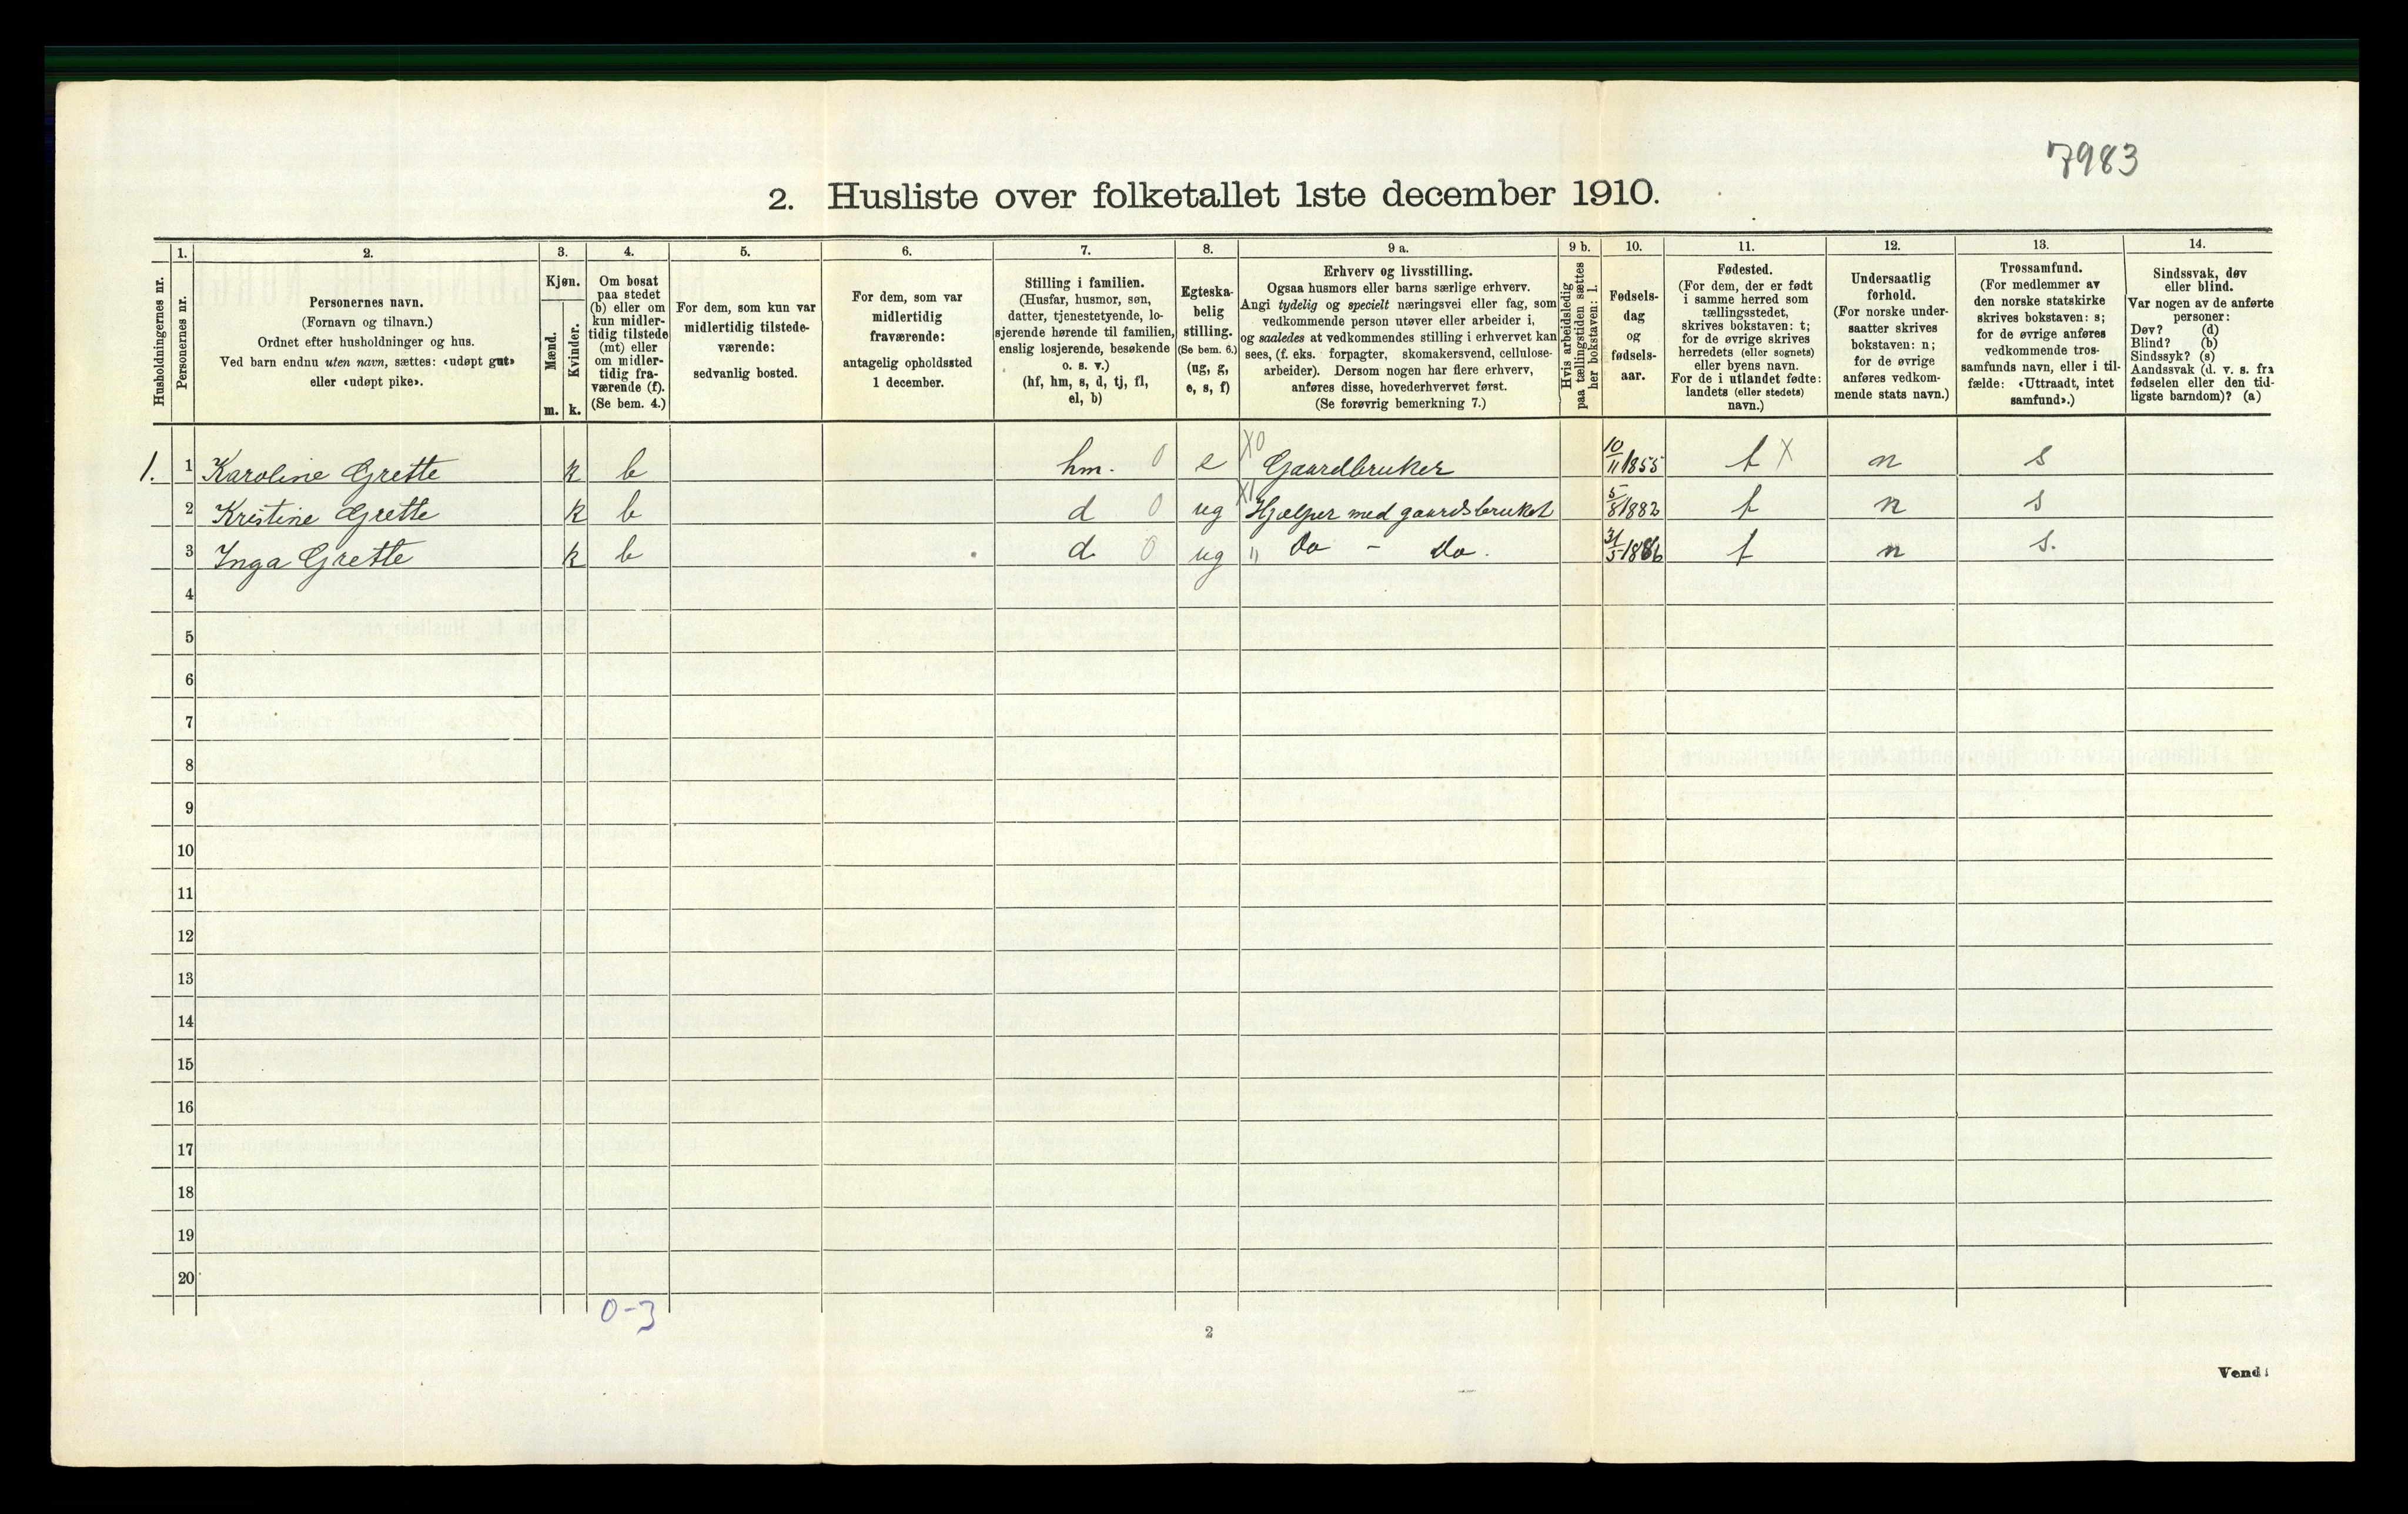 7983
2. Husliste over folketallet 1ste december 1910.
Husholdningernes nr.
1.
Personernes nr.
2.
Personernes navn.
(Fornavn og tilnavn.)
Ordnet efter husholdninger og hus.
Ved barn endnu uten navn, sættes: «udøpt gut»
eller «udøpt pike».
3.
Kjøn.
Mænd.
Kvinder.
m. k.
4.
Om bosat
paa stedet
(b) eller om
kun midler-
tidig tilstede
(mt) eller
om midler-
tidig fra-
værende (f).
(Se bem. 4.)
5.
For dem, som kun var
midlertidig tilstede-
værende:
sedvanlig bosted.
6.
For dem, som var
midlertidig
fraværende:
antagelig opholdssted
1 december.
7.
Stilling i familien.
(Husfar, husmor, søn,
datter, tjenestetyende, lo-
sjerende hørende til familien,
enslig losjerende, besøkende
o. s. v.)
(hf, hm, s, d, tj, fl,
el, b)
8.
Egteska-
belig
stilling.
(Se bem. 6.)
(ug, g,
e, s, f)
9 a.
Erhverv og livsstilling.
Ogsaa husmors eller barns særlige erhverv.
Angi tydelig og specielt næringsvei eller fag, som
vedkommende person utøver eller arbeider i,
og saaledes at vedkommendes stilling i erhvervet kan
sees, (f. eks. forpagter, skomakersvend, cellulose-
arbeider). Dersom nogen har flere erhverv,
anføres disse, hovederhvervet først.
(Se forøvrig bemerkning 7.)
9 b.
Hvis arbeidsledig
paa tællingstiden sættes
her bokstaven: l.
10.
Fødsels-
dag
og
fødsels-
aar.
11.
Fødested.
(For dem, der er født
i samme herred som
tællingsstedet,
skrives bokstaven: t;
for de øvrige skrives
herredets (eller sognets)
eller byens navn.
For de i utlandet fødte:
landets (eller stedets)
navn.)
12.
Undersaatlig
forhold.
(For norske under-
saatter skrives
bokstaven: n;
for de øvrige
anføres vedkom-
mende stats navn.)
13.
Trossamfund.
(For medlemmer av
den norske statskirke
skrives bokstaven: s;
for de øvrige anføres
vedkommende tros-
samfunds navn, eller i til-
fælde: «Uttraadt, intet
samfund».)
14.
Sindssvak, døv
eller blind.
Var nogen av de anførte
personer:
Døv? (d)
Blind? (b)
Sindssyk? (s)
Aandssvak (d. v. s. fra
fødselen eller den tid-
ligste barndom)? (a)
1. 1 Karoline Grette k b hm. 0 e X0 Gaardbruker 10/11 1855 t X n s
2 Kristine Grette k b d 0 ug X1 Hjælper med gaardsbruket 5/8 1882 t n s
3 Inga Grette k b d 0 ug " Do - Do. 31/5 1886 t n s.
4
5
6
7
8
9
10
11
12
13
14
15
16
17
18
19
20
0-3
2
Vend!